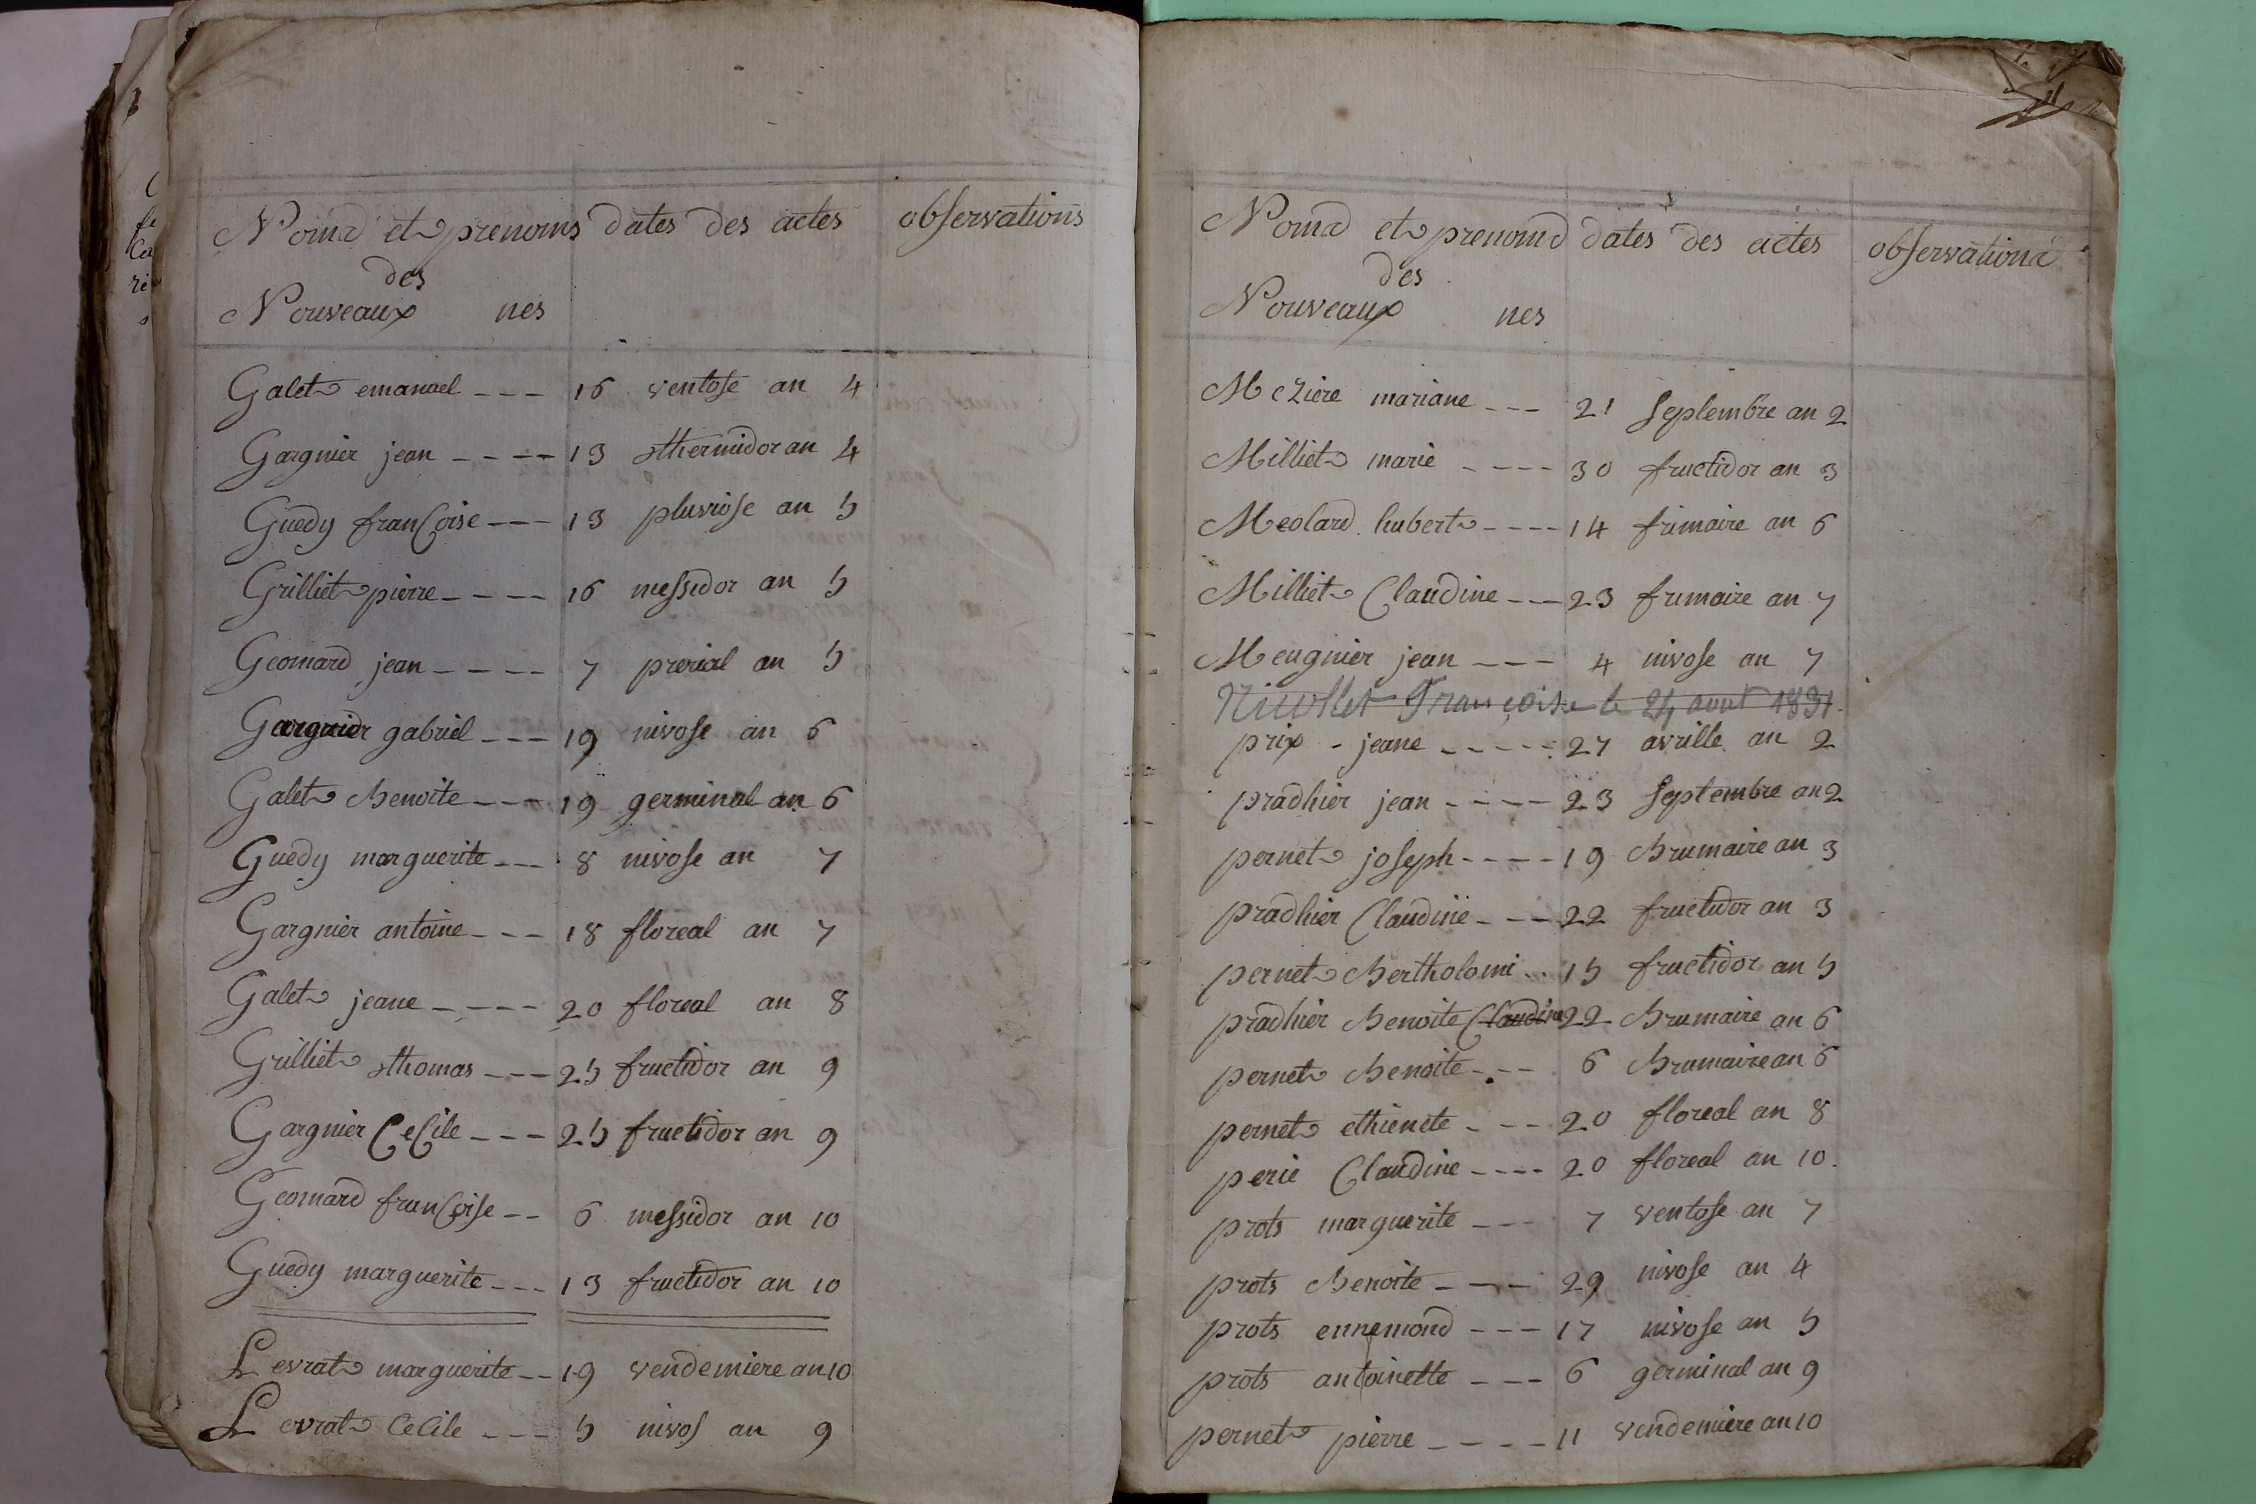 Noms et prenoms dates des actes observations
des
Nouveaux nes
Galet emanuel --- 16 ventose an 4
Gargnier jean ---- 13 thermidor an 4
Guedy francoise --- 13 pluviose an 5
Grilliet pierre ---- 16 messidor an 5
Geomard jean ---- 7 prerial an 5
Gargnier gabriel --- 19 nivose an 6
Galet Benoite --- 19 germinal an 6
Guedy marguerite --- 8 nivose an 7
Gargnier antoine --- 18 floreal an 7
Galet jeane ---- 20 floreal an 8
Grilliet thomas --- 25 fructidor an 9
Gargnier Cecile --- 25 fructidor an 9
Geomard francoise -- 6 messidor an 10
Guedy marguerite --- 13 fructidor an 10
Levrat marguerite -- 19 vendemiere an 10
Levrat Cecile --- 5 nivos an 9
Noms et prenoms dates des actes observations
des
Nouveaux nes
Meziere mariane --- 21 septembre an 2
Milliet marie ---- 30 fructidor an 3
Meolard hubert ---- 14 frimaire an 6
Milliet Claudine --- 23 frimaire an 7
Meugnier jean --- 4 nivose an 7
Nicollet Françoise le 24 aout 1831.
prix - jeane ----- 27 avrille an 2
pradhier jean ---- 23 septembre an 2
pernet joseph ---- 19 Brumaire an 3
pradhier Claudine --- 22 fructidor an 3
pernet Bertholomi -- 15 fructidor an 5
pradhier Benoite Claudine 22 Brumaire an 6
pernet Benoite --- 6 Brumaire an 6
pernet ethienete --- 20 floreal an 8
perie Claudine ---- 20 floreal an 10.
prots marguerite --- 7 ventose an 7
prots Benoite ---- 29 nivose an 4
prots ennemond --- 17 nivose an 5
prots antoinette --- 6 germinal an 9
pernet pierre ---- 11 vendemiere an 10